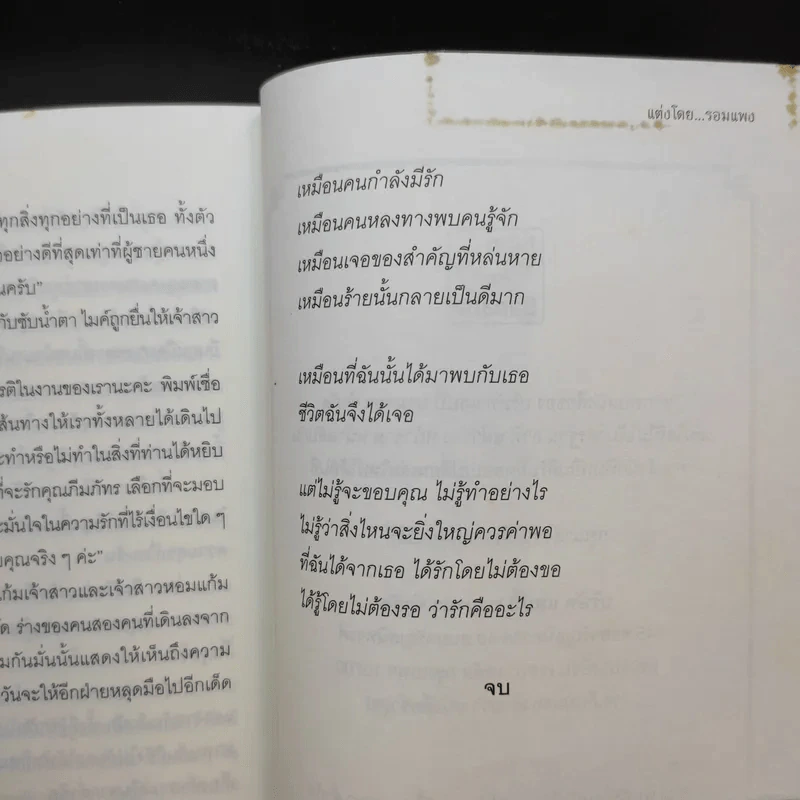 ทุกสิ่งทุกอย่างที่เป็นเธอ ทั้งตัว
อย่างดีที่สุดเท่าที่ผู้ชายคนหนึ่ง
นครับ”
กับซับน้ำตา ไมค์ถูกยื่นให้เจ้าสาว
รติในงานของเรานะคะ พิมพ์เชื่อ
ส้นทางให้เราทั้งหลายได้เดินไป
ะทำหรือไม่ทำในสิ่งที่ท่านได้หยิบ
ที่จะรักคุณภีมภัทร เลือกที่จะมอบ
ะมั่นใจในความรักที่ไร้เงื่อนไขใด ๆ
บคุณจริง ๆ ค่ะ”
แก้มเจ้าสาวและเจ้าสาวหอมแก้ม
ร่างของคนสองคนที่เดินลงจาก
มกันมั่นนั้นแสดงให้เห็นถึงความ
วันจะให้อีกฝ่ายหลุดมือไปอีกเด็ด
แต่งโดย...รอมแพง
เหมือนคนกำลังมีรัก
เหมือนคนหลงทางพบคนรู้จัก
เหมือนเจอของสำคัญที่หล่นหาย
เหมือนร้ายนั้นกลายเป็นดีมาก
เหมือนที่ฉันนั้นได้มาพบกับเธอ
ชีวิตฉันจึงได้เจอ
แต่ไม่รู้จะขอบคุณ ไม่รู้ทำอย่างไร
ไม่รู้ว่าสิ่งไหนจะยิ่งใหญ่ควรค่าพอ
ที่ฉันได้จากเธอ ได้รักโดยไม่ต้องขอ
ได้รู้โดยไม่ต้องรอ ว่ารักคืออะไร
จบ